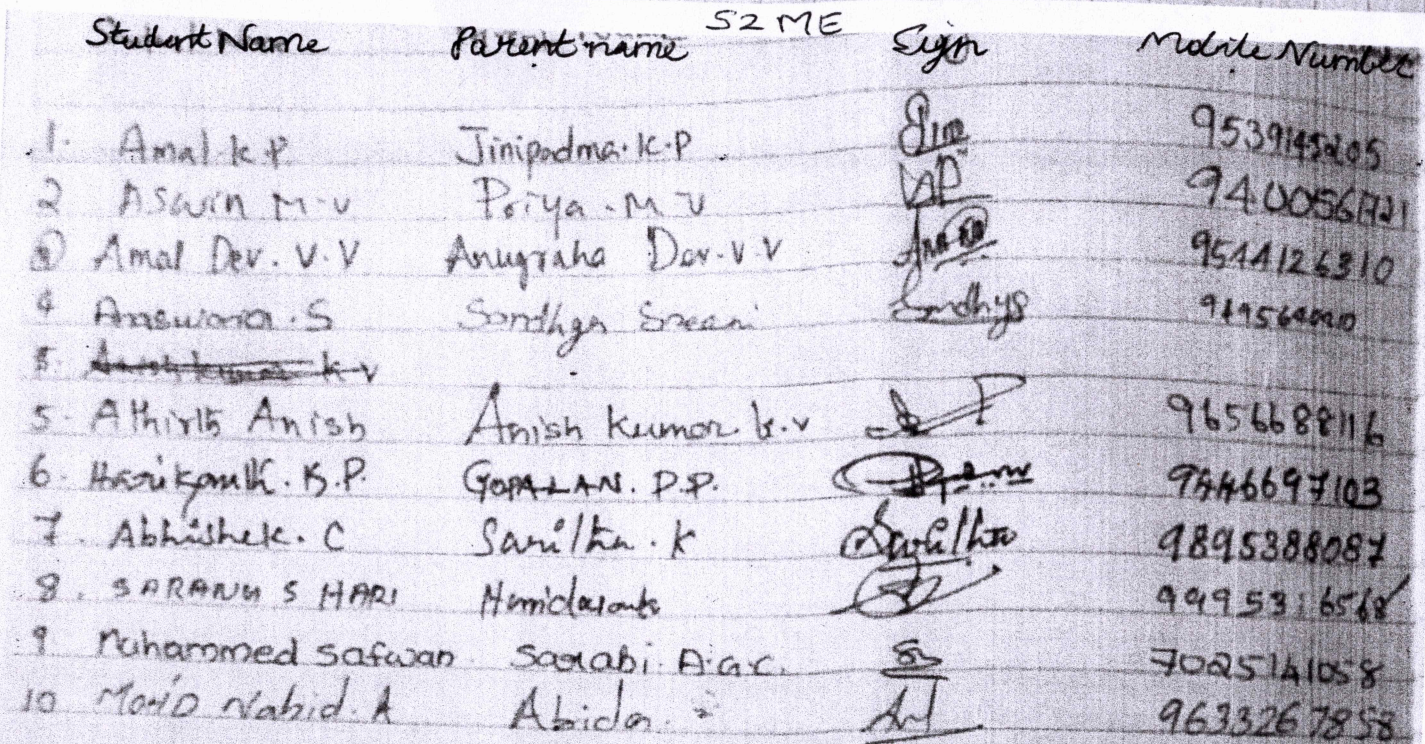 S2 ME
Student Name Parent name Sign Mobile Number
1. Amal K.P Jinipadma.K.P 9539145205
2 Aswin M.V Priya.M.V 9400561721
3 Amal Dev.V.V Anugraha Dev.V.V 9544126310
4 Anaswara.S Sandhya Sandhya
5. K V
5. Athirth Anish Anish Kumar k.v 9656688116
6. Harikganth.K.P. GOPALAN. P.P. 9446697103
7. Abhishek.C Savitha.K Savitha 9895388087
8. SARANG S HARI 9995316568
9 Muhammed Safwan Sarabi A.G.C. 7025141058
10 Mohd Nabid.A Abida. 9633267858